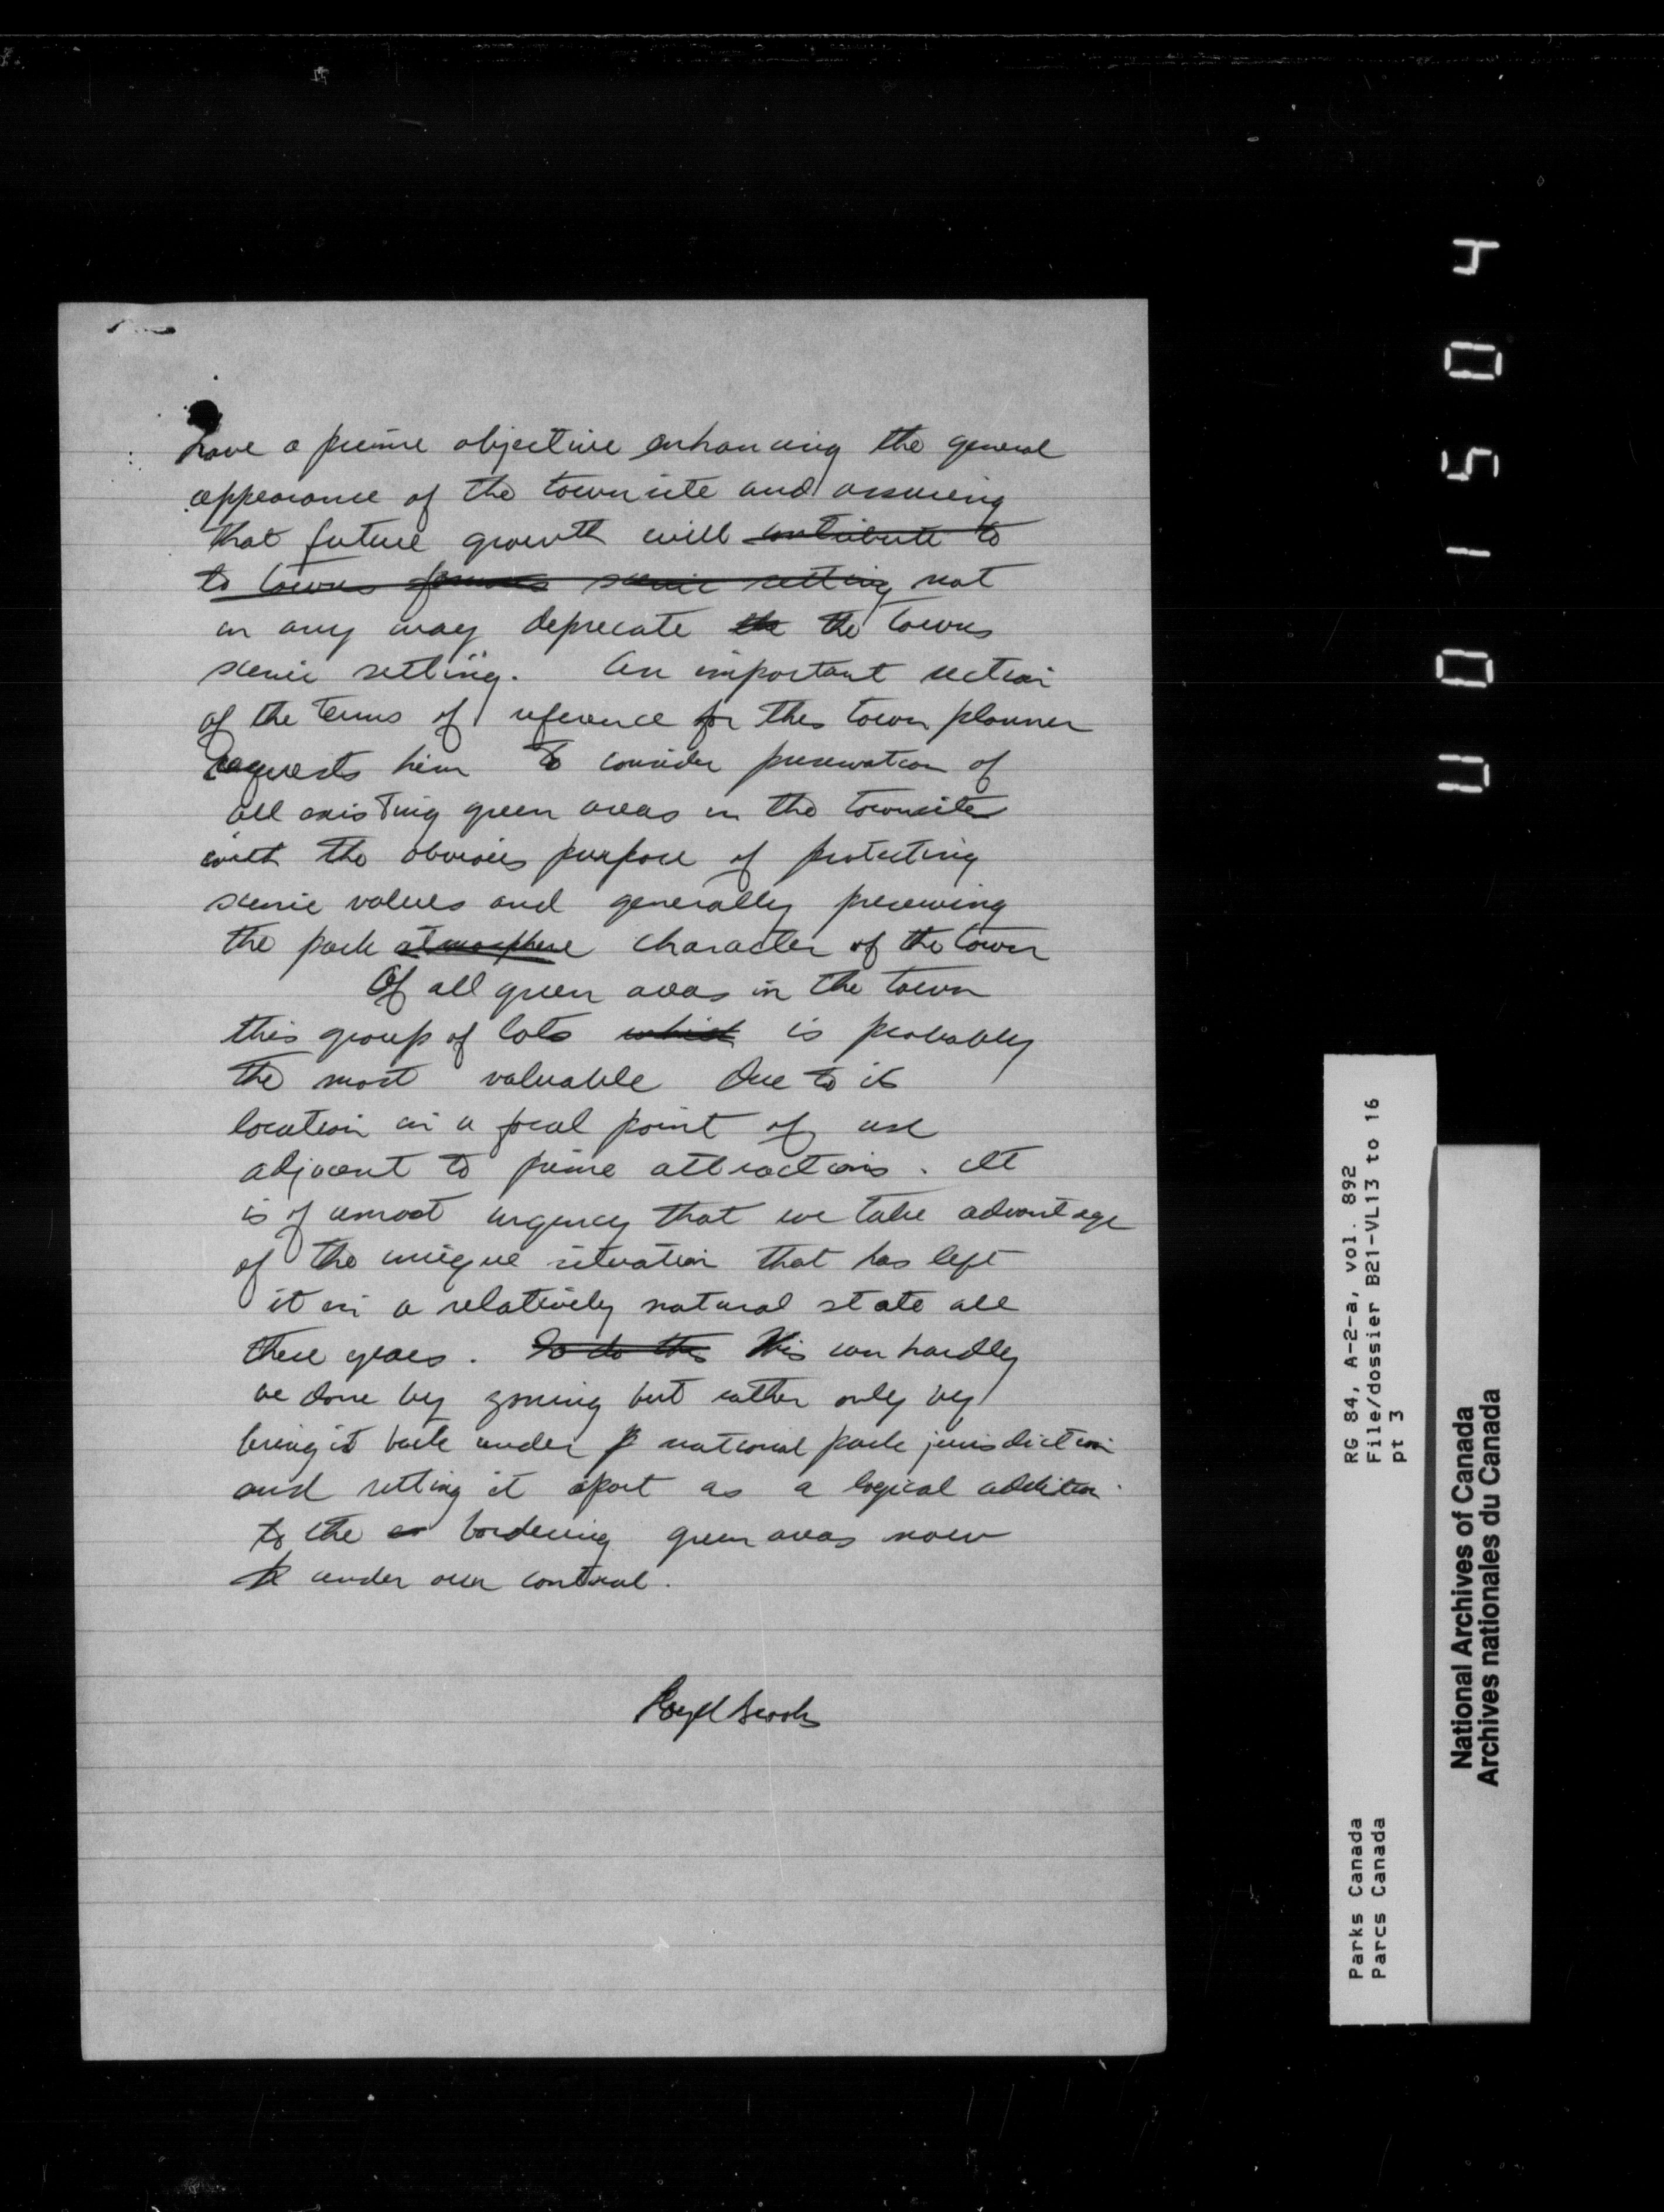 have a prime objective enhancing the general
appearance of the townsite and assuring
that future growth will contribute to
to towns famous scenic setting not
in any way deprecate the the towns
scenic setting. An important section
of the terms of reference for this town planner
requests him to consider preservation of
all existing green areas in the townsite
with the obvious purpose of protecting
scenic values and generally preserving
the park atmosphere character of the town
Of all green areas in the town
this group of lots which is probably
the most valuable due to its
location in a focal point of use
adjacent to prime attractions. It
is of umost urgency that we take advantage
of the unique situation that has left
it in a relatively natural state all
these years. To do this This can hardly
be done by zoning but rather only by
bring it back under p national park jurisdiction
and setting it apart as a logical addition
to the bordering green areas now
under our control.
Lloyd Brooks
U 0 1 5 0 4
RG 84, A-2-a, vol. 892
File/dossier B21-VL13 to 16
pt 3
Parks Canada
Parcs Canada
National Archives of Canada
Archives nationales du Canada